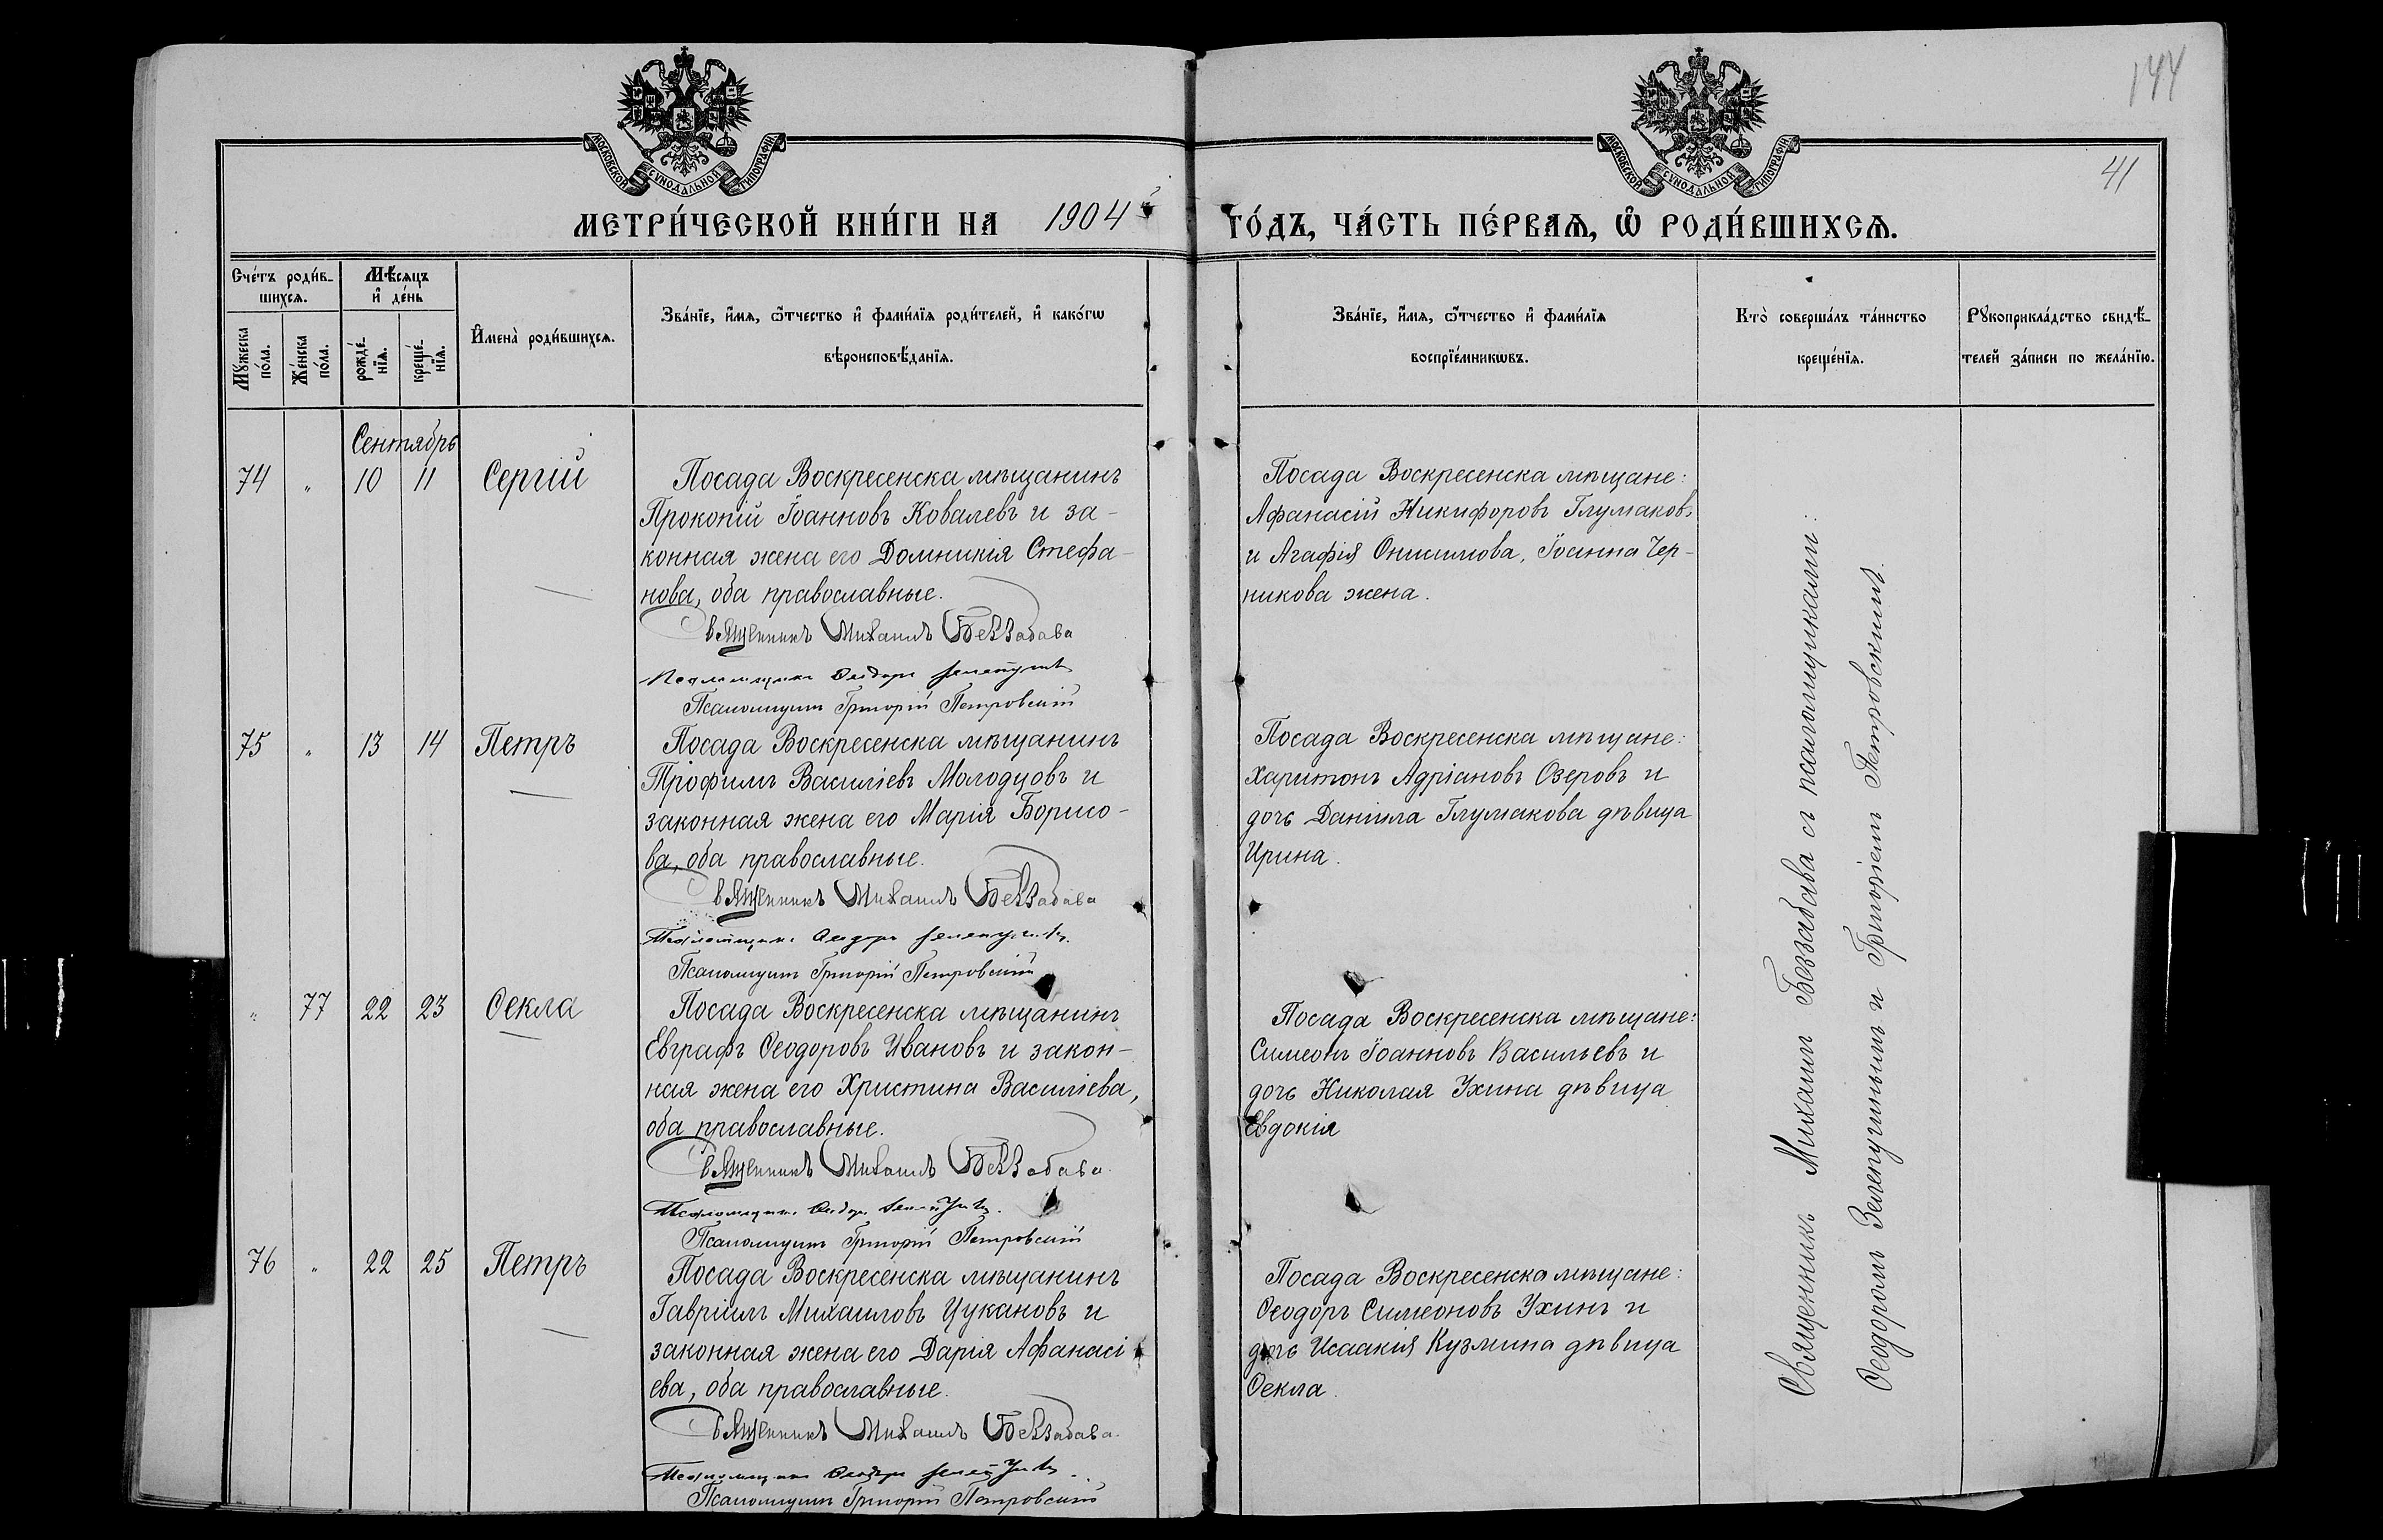 144
41
МОСКОВСКОЙ СѴНОДАЛЬНОЙ ТИПОГРАФІИ
МОСКОВСКОЙ СѴНОДАЛЬНОЙ ТИПОГРАФІИ
МЕТРИ́ЧЕСКОЙ КНИ́ГИ НА 1904 й ГО́ДЪ, ЧА́СТЬ ПЕ́РВАѦ, Ѽ РОДИ́ВШИХСѦ.
Сче́тъ роди́в-
шихсѧ.
Мꙋжеска
по́ла.
Же́нска
по́ла.
Мѣ́сѧцъ
и҆ де́нь
рожде́-
нїѧ.
креще́-
нїѧ.
И҆мена̀ роди́вшихсѧ.
Зва́нїе, и҆́мѧ, ѻ҆́тчество и҆ фами́лїѧ роди́телей, и҆ како́гѡ
вѣроисповѣ́данїѧ.
Зва́нїе, и҆́мѧ, ѻ҆́тчество и҆ фами́лїѧ
воспрїе́мникѡвъ.
Кто̀ соверша́лъ та́инство
креще́нїѧ.
Рꙋкоприкла́дство свидѣ́-
телей за́писи по жела́нїю.
Сентябрь
74 „ 10 11 Сергій
Посада Воскресенска мѣщанинъ
Прокопій Іоанновъ Ковалевъ и за-
конная жена его Домникія Стефа-
нова, оба православные.
Священникъ Михаилъ Беззабава
Псаломщикъ Ѳеодоръ Зелепугинъ
Псаломщикъ Григорій Петровскій
Посада Воскресенска мѣщане:
Афанасій Никифоровъ Глумаковъ
и Агафія Онисимова, Іоанна Чер-
никова жена.
75 „ 13 14 Петръ
Посада Воскресенска мѣщанинъ
Трофимъ Василіевъ Молодцовъ и
законная жена его Марія Борисо-
ва, оба православные.
Священникъ Михаилъ Беззабава
Псаломщикъ Ѳеодоръ Зелепугинъ
Псаломщикъ Григорій Петровскій
Посада Воскресенска мѣщане:
Харитонъ Адріановъ Озеровъ и
дочь Даніила Глумакова дѣвица
Ирина.
„ 77 22 23 Ѳекла
Посада Воскресенска мѣщанинъ
Евграфъ Ѳеодоровъ Ивановъ и закон-
ная жена его Христина Василіева,
оба православные.
Священникъ Михаилъ Беззабава.
Псаломщикъ Ѳеодоръ Зелепугинъ.
Псаломщикъ Григорій Петровскій
Посада Воскресенска мѣщане:
Симеонъ Іоанновъ Васильевъ и
дочь Николая Ухина дѣвица
Евдокія
76 „ 22 25 Петръ
Посада Воскресенска мѣщанинъ
Гавріилъ Михаиловъ Цукановъ и
законная жена его Дарія Афанасі
ева, оба православные.
Священникъ Михаилъ Беззабава.
Псаломщикъ Ѳеодоръ Зелепугинъ.
Псаломщикъ Григорій Петровскій
Посада Воскресенска мѣщане:
Ѳеодоръ Симеоновъ Ухинъ и
дочь Исаакія Кузмина дѣвица
Ѳекла.
Священникъ Михаилъ Беззабава съ псаломщиками:
Ѳеодоромъ Зелепугинымъ и Григоріемъ Петровскимъ.